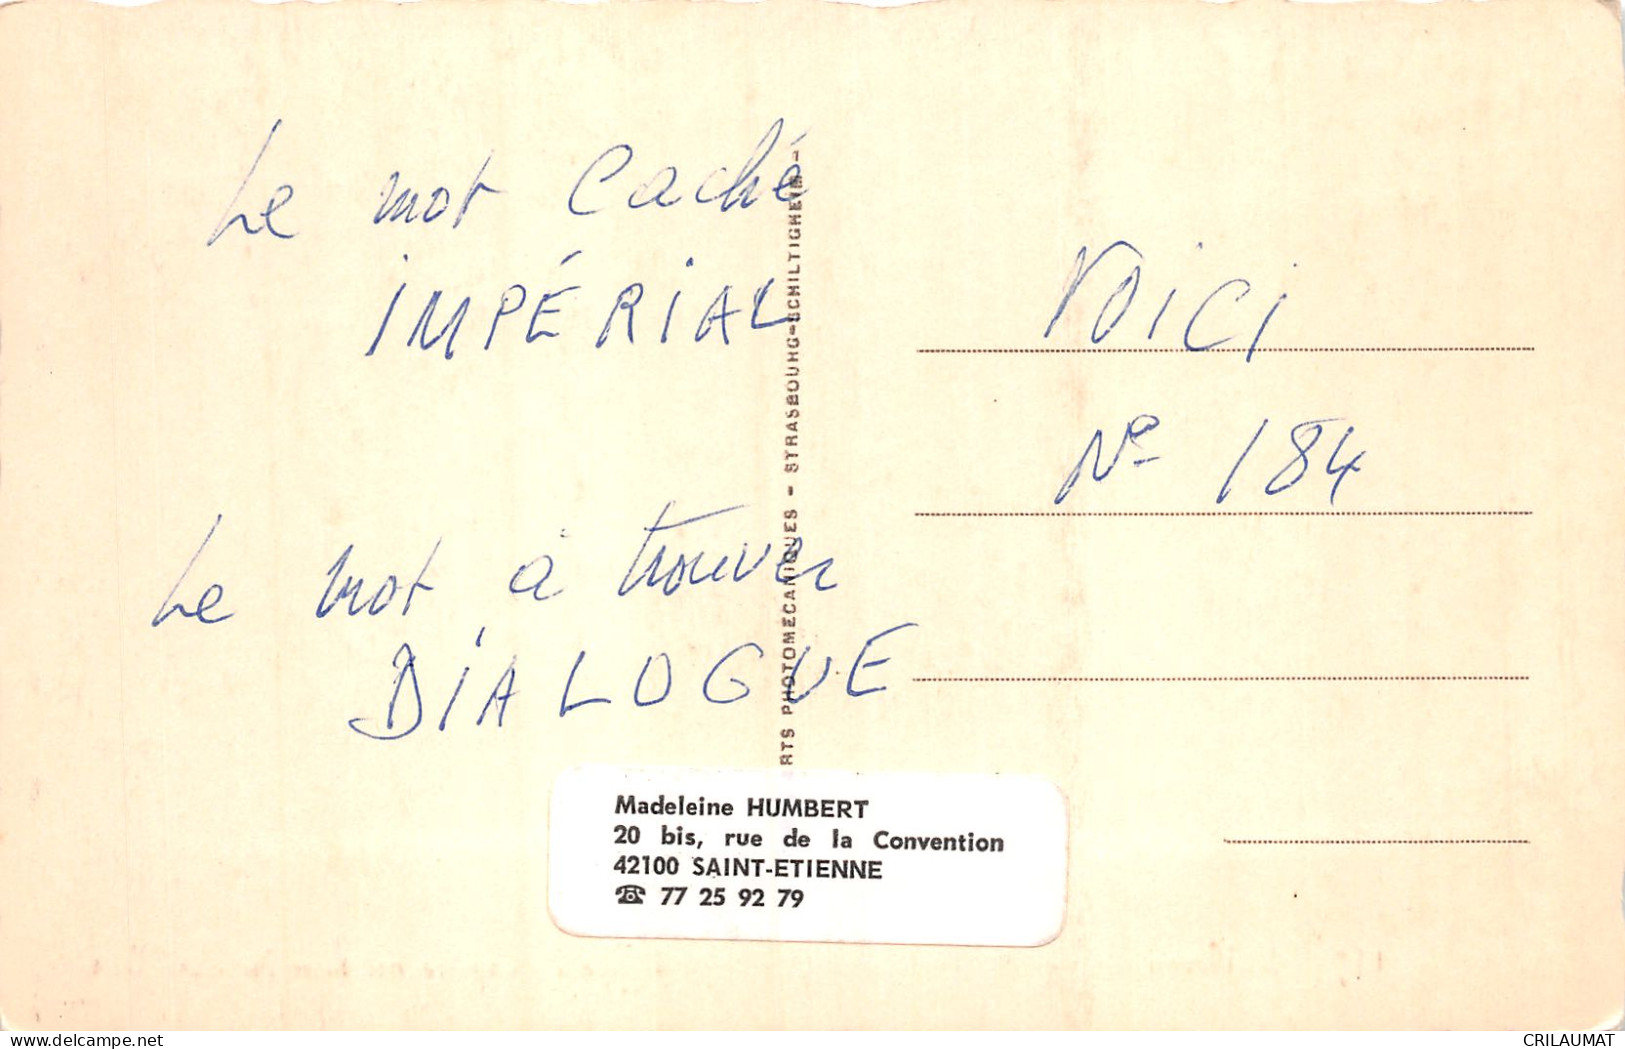 Le mot caché
IMPÉRIAL
Le mot à trouver
DIALOGUE
RTS PHOTOMECANIQUES - STRASBOURG-SCHILTIGHEIM -
VOICI
Nº 184
Madeleine HUMBERT
20 bis, rue de la Convention
42100 SAINT-ETIENNE
☎ 77 25 92 79
delcampe.net
CRILAUMAT